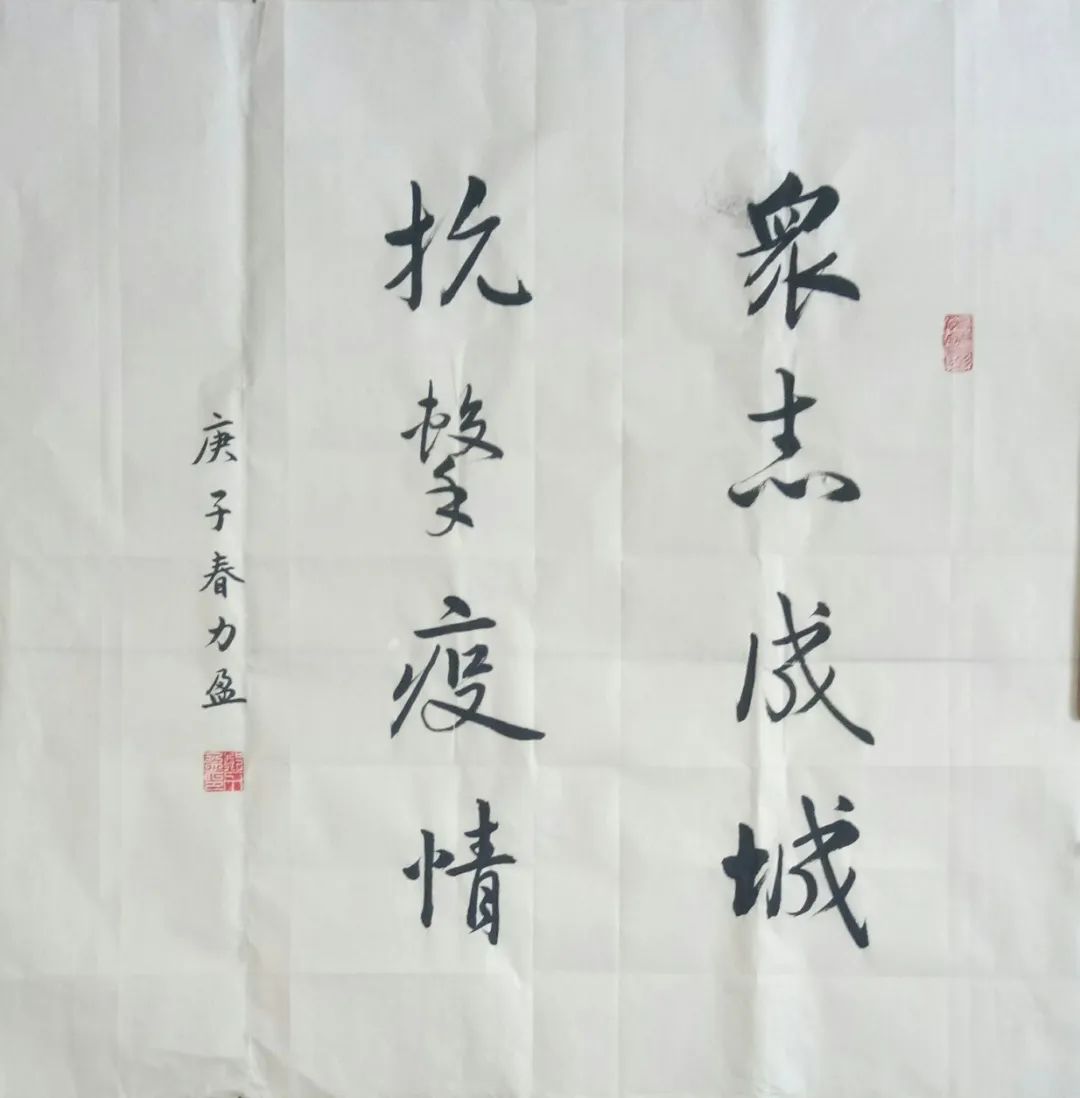 眾志成城
抗擊疫情
庚子春力盈